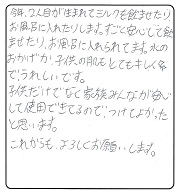 今年、2人目が生まれてミルクを飲ませたり、
お風呂に入れたりします。すごく安心して飲
ませたり、お風呂に入れられてます。水の
おかげか、子供の肌もとてもキレイ
で、うれしいです。
子供だけでなく家族みんなが安心し
て使用できてるので、つけてよかった
と思います。
これからも、よろしくお願いします。